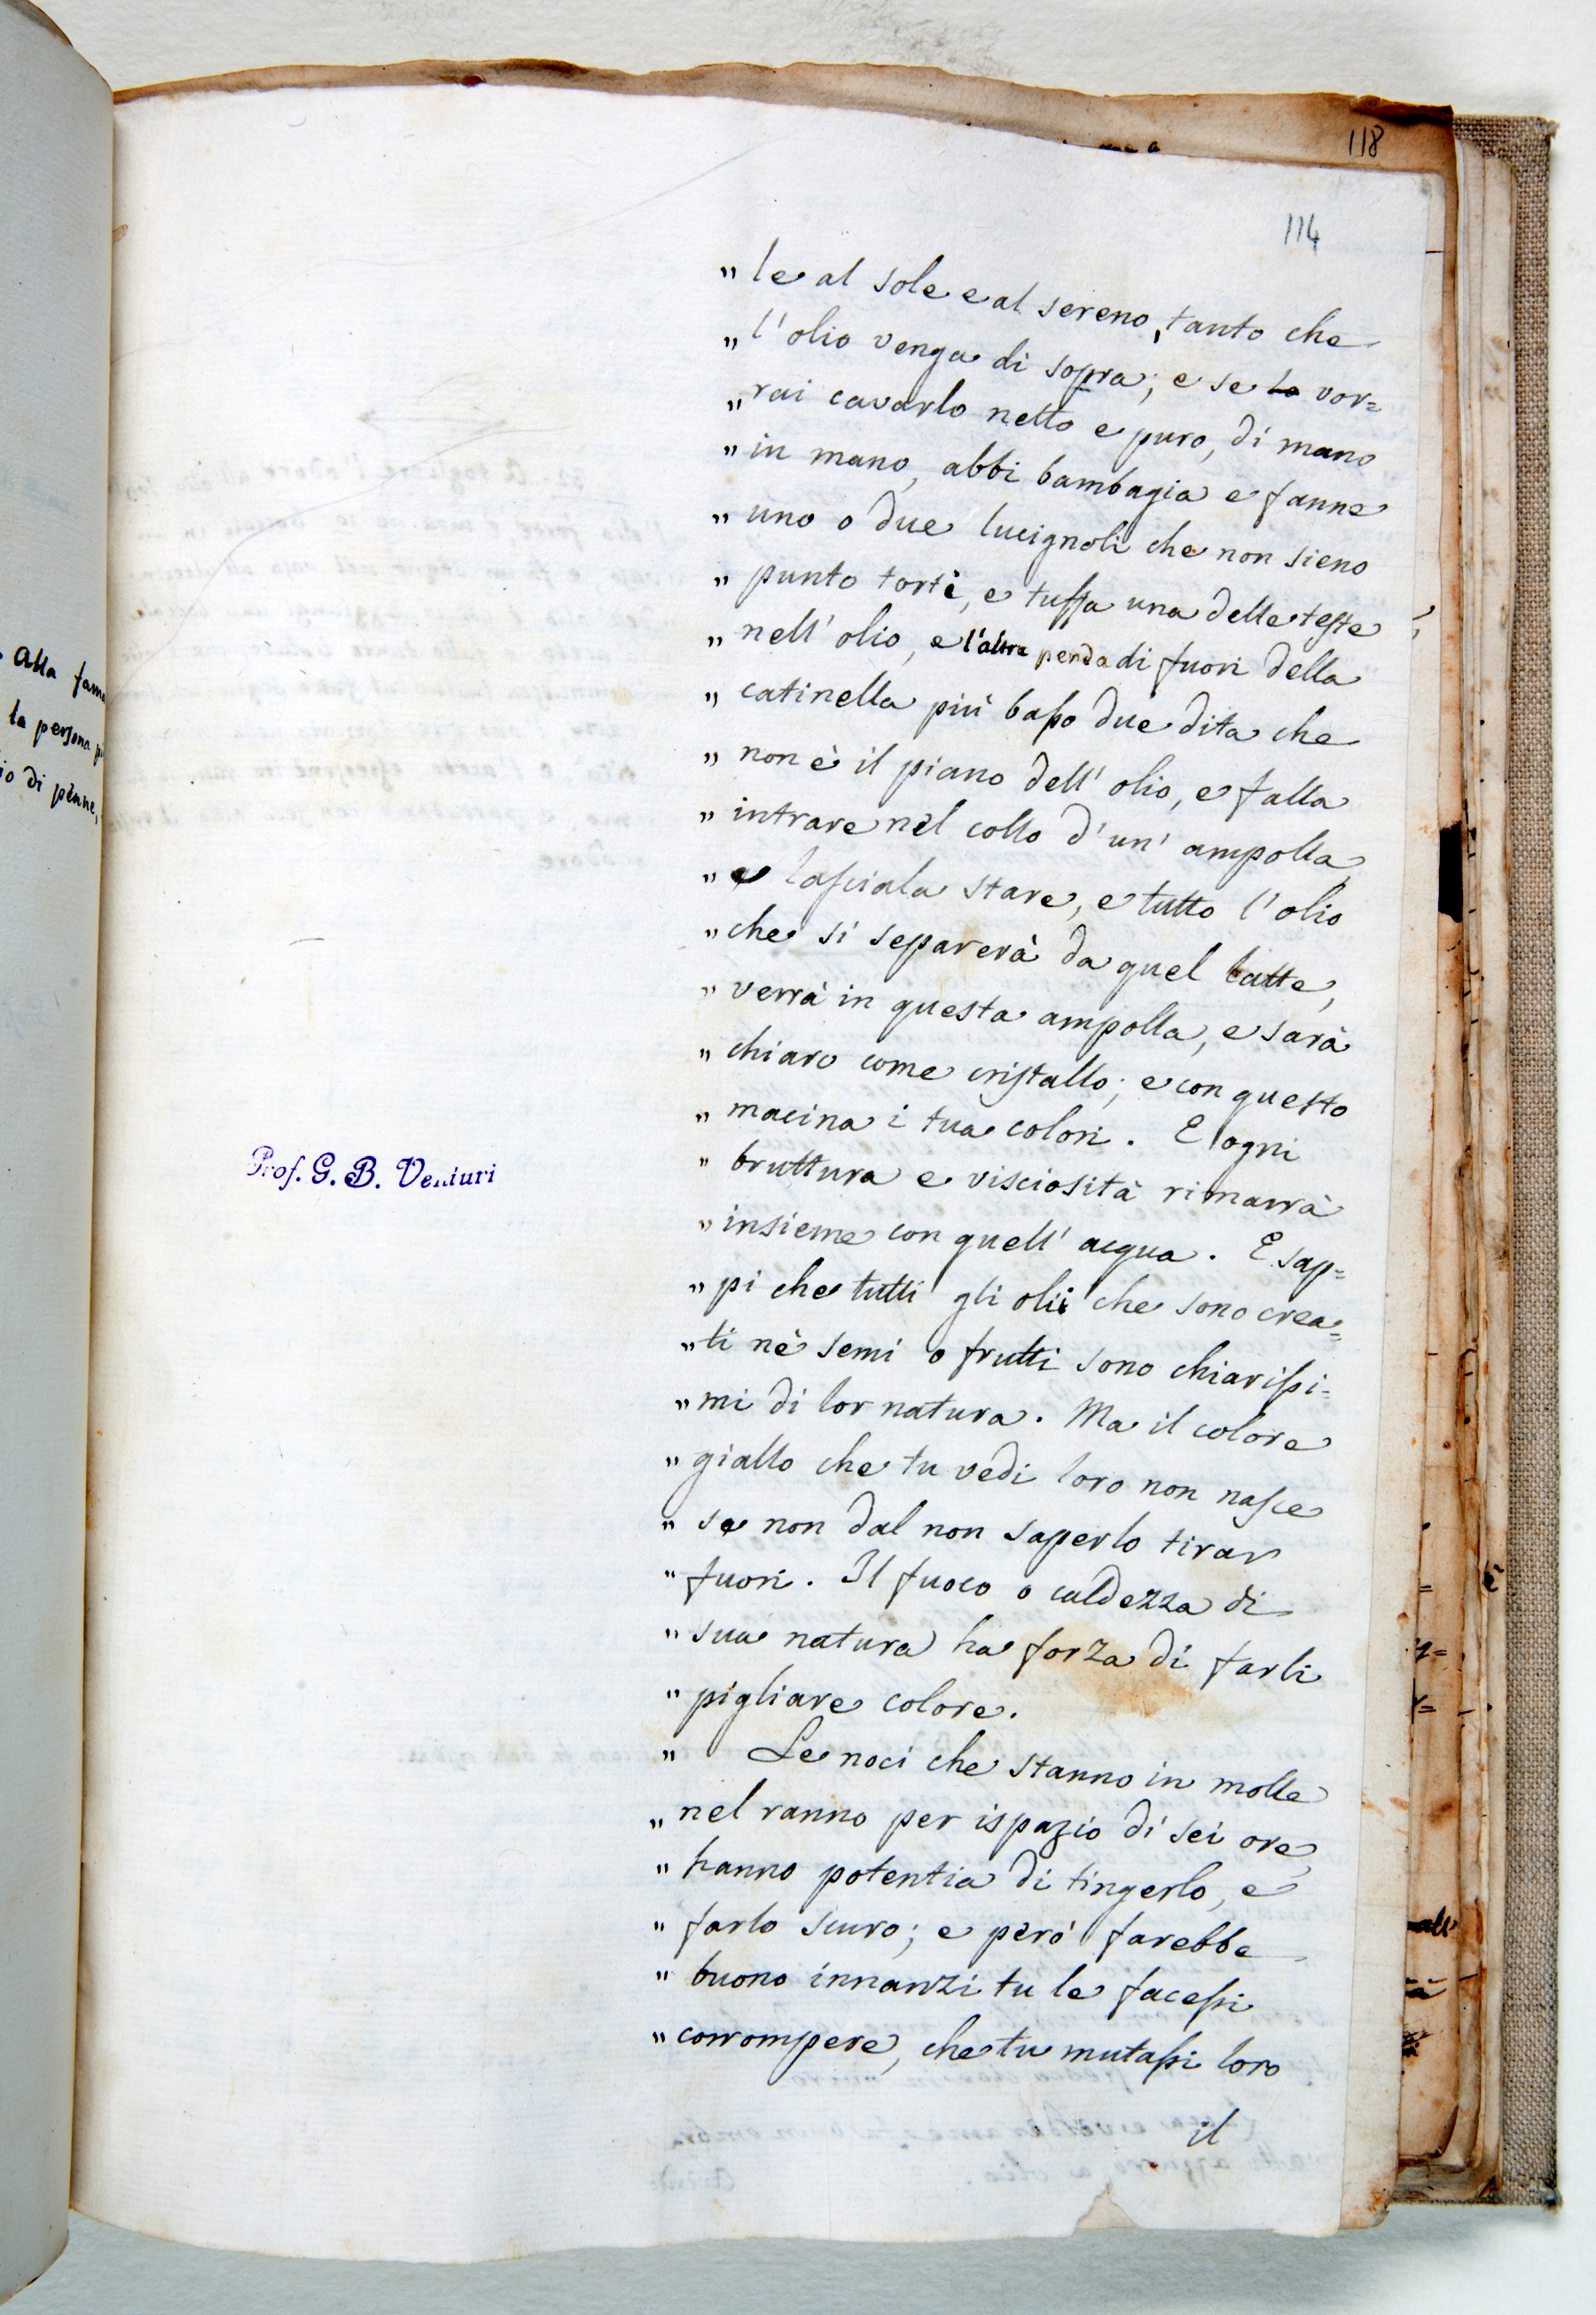 118
114
" le al sole e al sereno, tanto che
" l'olio venga di sopra; e se lo vor=
" rai cavarlo netto e puro, di mano
" in mano, abbi bambagia e fanne
" uno o due lucignoli che non sieno
" punto torti, e tuffa una delle teste
" nell'olio, e l'altra penda di fuori della
" catinella più basso due dita che
" non è il piano dell'olio, e falla
" intrare nel collo d'un'ampolla,
" e lasciala stare, e tutto l'olio
" che si separerà da quel latte,
" verrà in questa ampolla, e sarà
" chiaro come cristallo; e con questo
" macina i tua colori. E ogni
" bruttura e visciosità rimarrà
" insieme con quell'acqua. E sap=
" pi che tutti gli olii che sono crea=
" ti nè semi o frutti sono chiarissi=
" mi di lor natura. Ma il colore
" giallo che tu vedi loro non nasce
" se non dal non saperlo tirar
" fuori. Il fuoco o caldezza di
" sua natura ha forza di farli
" pigliare colore.
" Le noci che stanno in molle
" nel ranno per ispazio di sei ore,
" hanno potentia di tingerlo, e
" farlo scuro; e però farebbe
" buono innanzi tu le facessi
" corrompere, che tu mutassi loro
il
Prof. G. B. Venturi
Alla fame
la persona
io di penne,